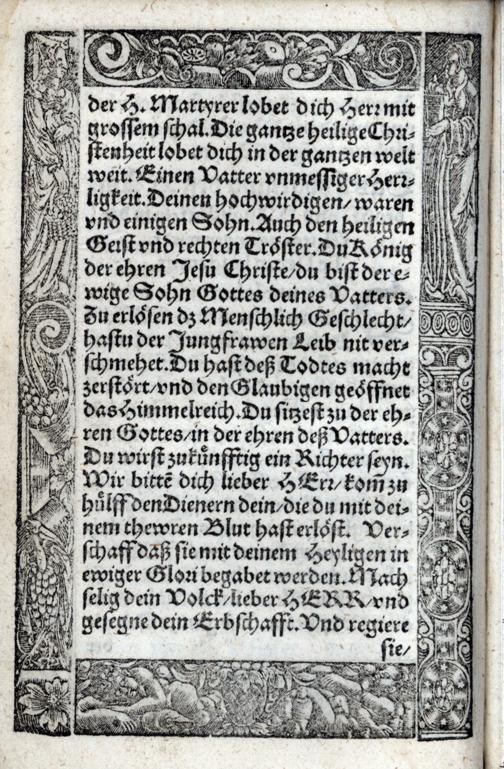 der H. Martyrer lobet dich Herr mit
grossem schal. Die gantze heilige Chri-
stenheit lobet dich in der gantzen welt
weit. Einen Vatter vnmessiger Herr-
ligkeit. Deinen hochwirdigen/ waren
vnd einigen Sohn. Auch den heiligen
Geist vnd rechten Tröster. Du König
der ehren Jesu Christe/ du bist der e-
wige Sohn Gottes deines Vatters.
Zu erlösen dz Menschlich Geschlecht/
hastu der Jungfrawen Leib nit ver-
schmehet. Du hast deß Todtes macht
zerstört/ vnd den Glaubigen geöffnet
das Himmelreich. Du sitzest zu der eh-
ren Gottes/ in der ehren deß Vatters.
Du wirst zukünfftig ein Richter seyn.
Wir bittē dich lieber HErr/ kom zu
hülff den Dienern dein/ die du mit dei-
nem thewren Blut hast erlöst. Ver-
schaff daß sie mit deinem Heyligen in
ewiger Glori begabet werden. Mach
selig dein Volck/ lieber HERR/ vnd
gesegne dein Erbschafft. Vnd regiere
sie/